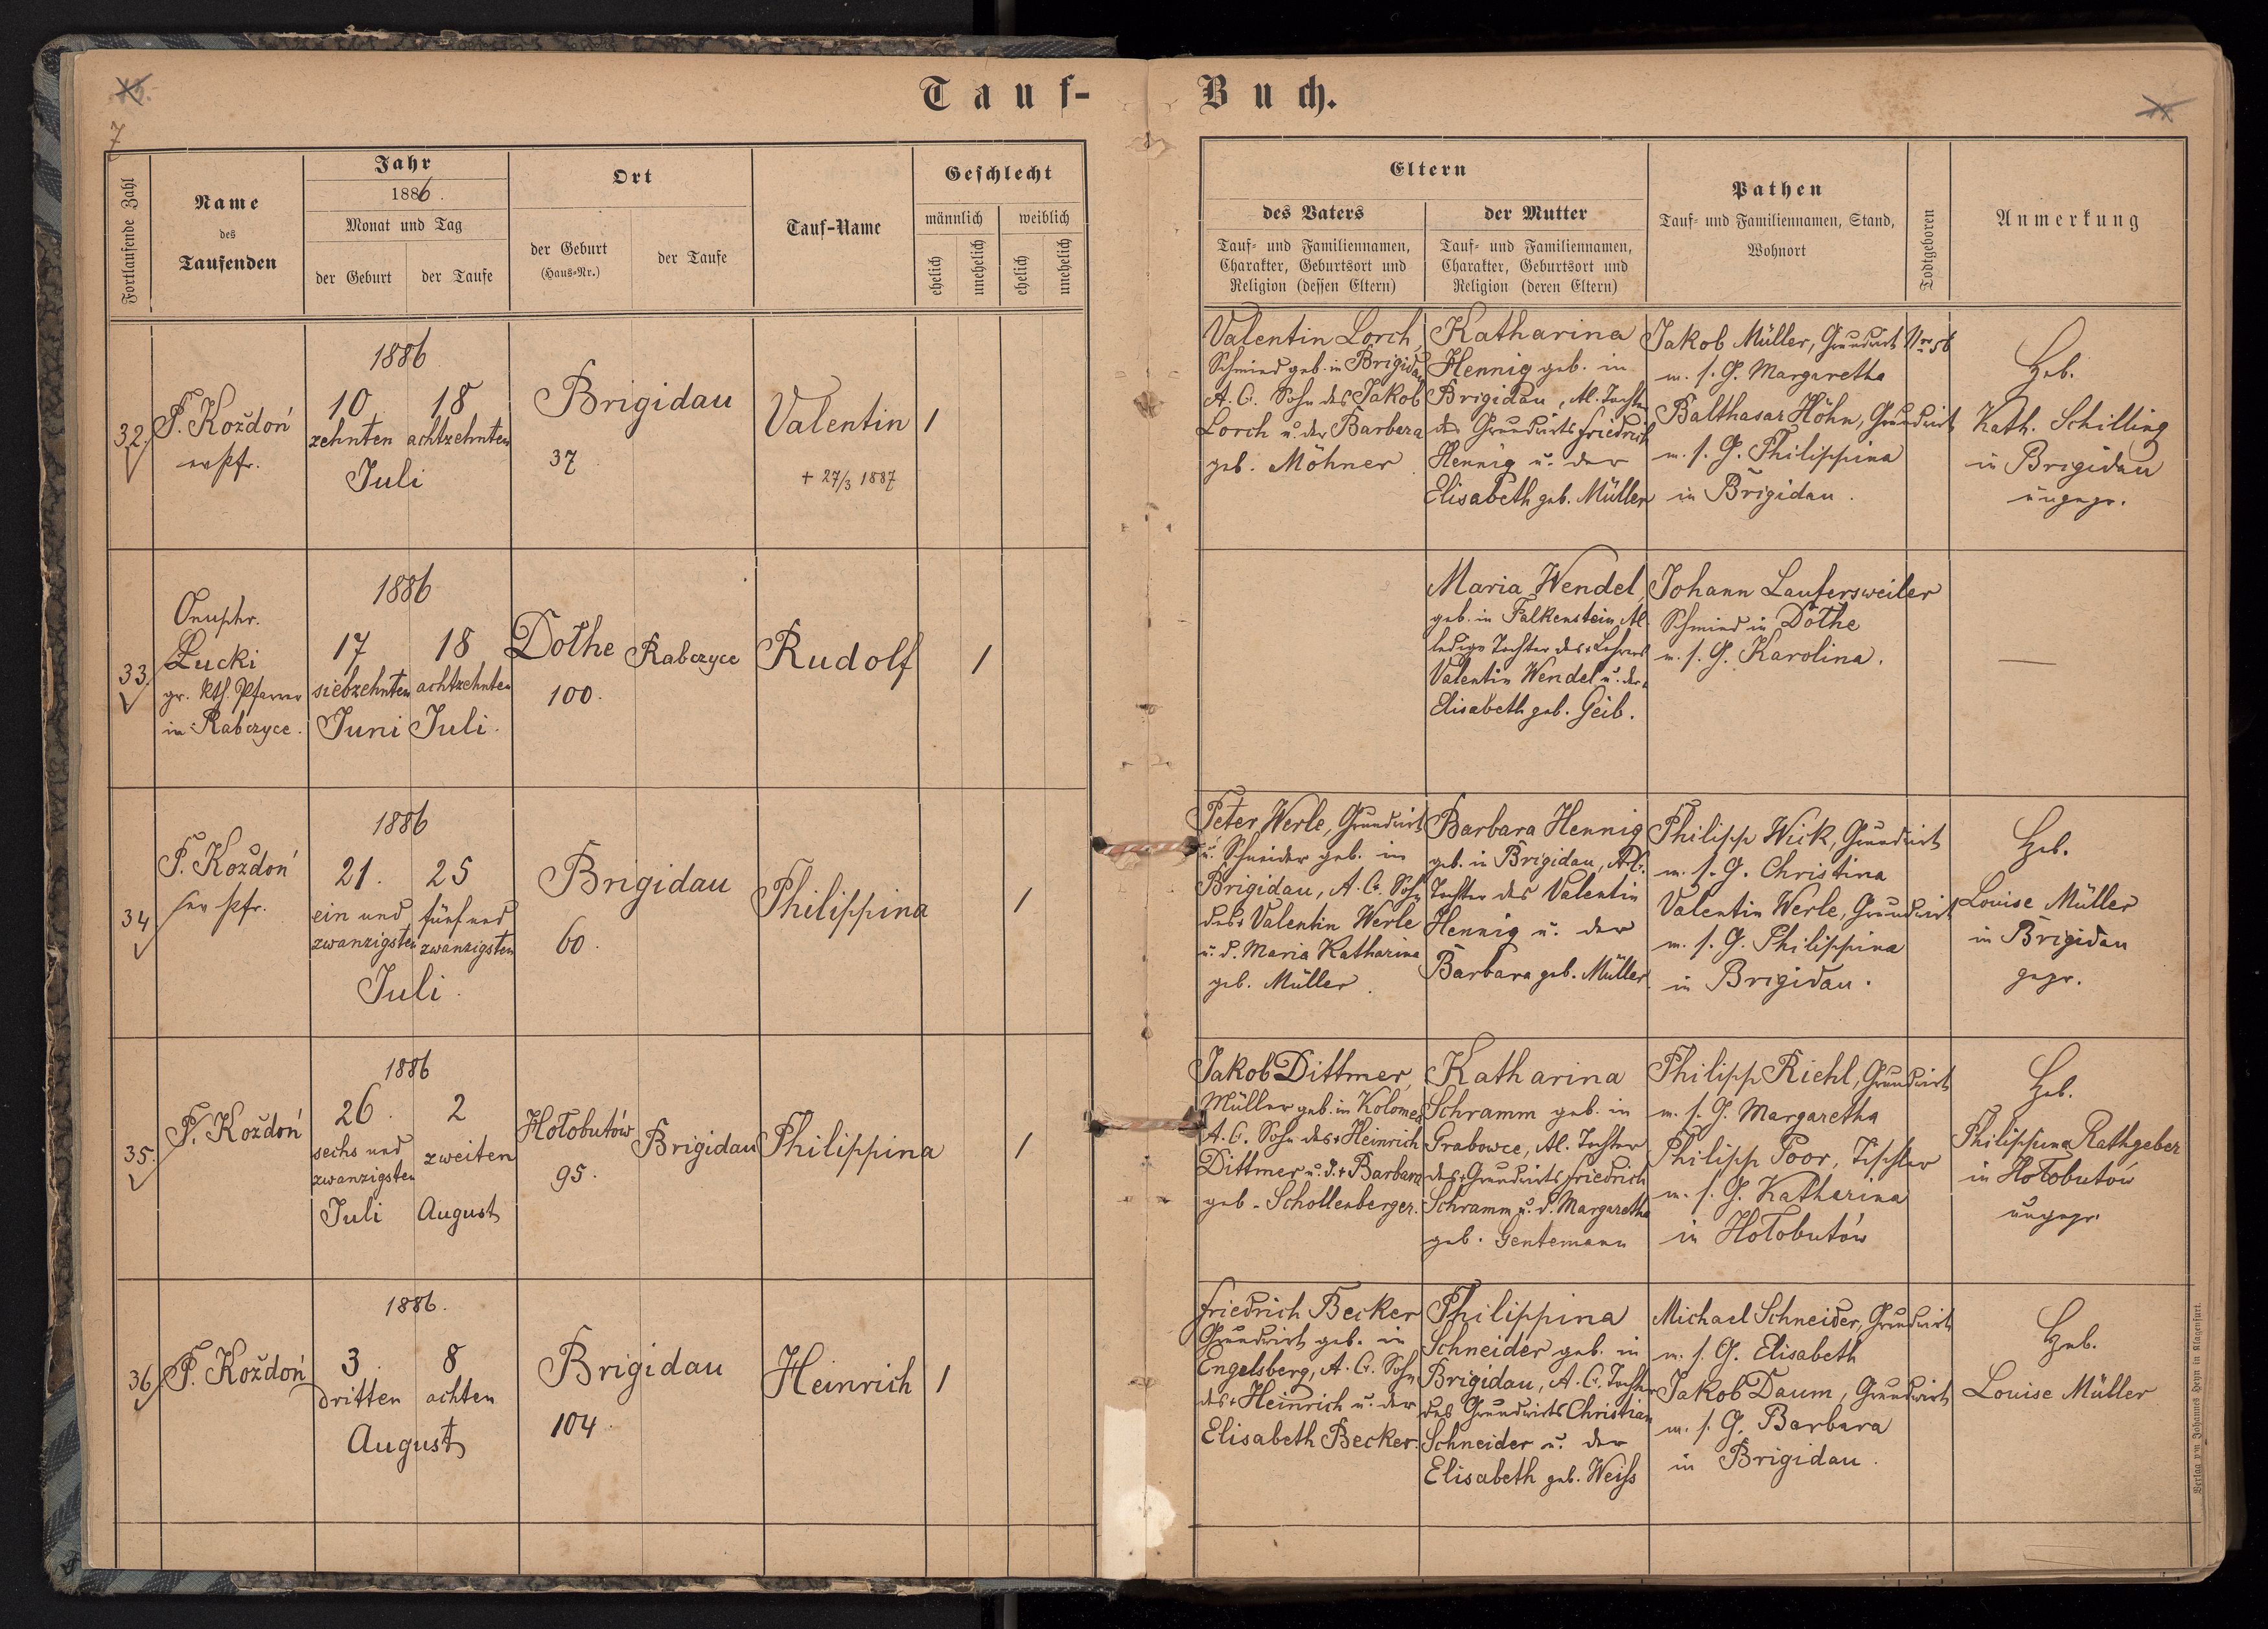 Tauf-
Buch.
7
Fortlaufende Zahl
Name
des
Taufenden
Jahr
1886.
Monat und Tag
der Geburt
der Taufe
Ort
der Geburt
(Haus-Nr.)
der Taufe
Tauf-Name
Geschlecht
männlich
weiblich
ehelich
unehelich
ehelich
unehelich
Eltern
des Vaters
Tauf- und Familiennamen,
Charakter, Geburtsort und
Religion (dessen Eltern)
der Mutter
Tauf- und Familiennamen,
Charakter, Geburtsort und
Religion (deren Eltern)
Pathen
Tauf- und Familiennamen, Stand,
Wohnort
Todtgeboren
Anmerkung
32.
F. Koždoń
ev Pfr.
1886
10.
zehnten
18
achtzehnten
Juli
Brigidau
37
Valentin
+ 27/3 1887
1
Valentin Lorch,
Schmied geb. in Brigidau
A. C. Sohn des Jakob
Lorch u. der Barbara
geb. Möhner.
Katharina
Hennig geb. in
Brigidau, Al. Tochter
des Grundwirts Friedrich
Hennig u. der
Elisabeth geb. Müller
Jakob Müller, Grundwirt Nro 56
m. s. G. Margaretha
Balthasar Höhn, Grundwirt
m. s. G. Philippina
in Brigidau.
Heb.
Kath. Schilling
in Brigidau
ungepr.
33.
Onuphr.
Łucki
gr. kth. Pfarrer
in Rabczyce.
1886
17
siebzehnten
Juni
18
achtzehnten
Juli.
Dothe
100.
Rabczyce
Rudolf
1
Maria Wendel,
geb. in Falkenstein, Al.
ledige Tochter des + Lehrers
Valentin Wendel u. der
Elisabeth geb. Geib.
Johann Laufersweiler
Schmied in Dothe
m. s. G. Karolina.
—
34
F. Koždoń
ev Pfr.
1886
21.
ein und
zwanzigsten
25
fünf und
zwanzigsten
Juli.
Brigidau
60.
Philippina
1
Peter Werle, Grundwirt
u. Schneider geb. in
Brigidau, A. C. Sohn
des + Valentin Werle
u. d. Maria Katharina
geb. Müller.
Barbara Hennig
geb. in Brigidau, A. C.
Tochter des Valentin
Hennig u. der
Barbara geb. Müller
Philipp Wick, Grundwirt
m. s. G. Christina
Valentin Werle, Grundwirt
m. s. G. Philippina
in Brigidau.
Heb.
Louise Müller
in Brigidau
gepr.
35.
F. Koždoń
1886
26.
sechs und
zwanzigsten
Juli
2
zweiten
August
Hołobutów
95.
Brigidau
Philippina
1
Jakob Dittmer,
Müller geb. in Kolomea
A. C. Sohn des + Heinrich
Dittmer u. d. + Barbara
geb. Schollenberger.
Katharina
Schramm geb. in
Grabowce, Al. Tochter
des + Grundwirts Friedrich
Schramm u. d. Margaretha
geb. Gentemann
Philipp Riehl, Grundwirt
m. s. G. Margaretha
Philipp Poor, Tischler
m. s. G. Katharina
in Hołobutów
Heb.
Philippina Rathgeber
in Hołobutów
ungepr.
36.
F. Koždoń
1886.
3.
dritten
8
achten
August
Brigidau
104.
Heinrich
1
Friedrich Becker
Grundwirt geb. in
Engelsberg, A. C. Sohn
des + Heinrich u. der
Elisabeth Becker.
Philippina
Schneider geb. in
Brigidau, A. C. Tochter
des Grundwirts Christian
Schneider u. der
Elisabeth geb. Weiß
Michael Schneider, Grundwirt
m. s. G. Elisabeth
Jakob Daum, Grundwirt
m. s. G. Barbara
in Brigidau.
Heb.
Louise Müller
Verlag von Johannes Heyn in Klagenfurt.